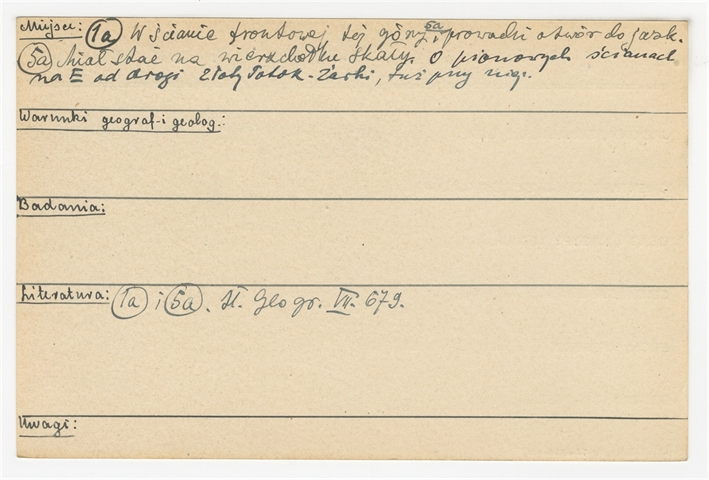 Miejsce: (1a) W ścianie frontowej tej góry 5a, prowadzi otwór do jask.
(5a) Miał stać na wierzchołku skały. O pionowych ścianach
na E od drogi Złoty Potok-Żarki, tuż przy niej.
Warunki geograf-i geolog.:
Badania:
Literatura: (1a) i (5a). Sł. Geogr. VII. 679.
Uwagi: